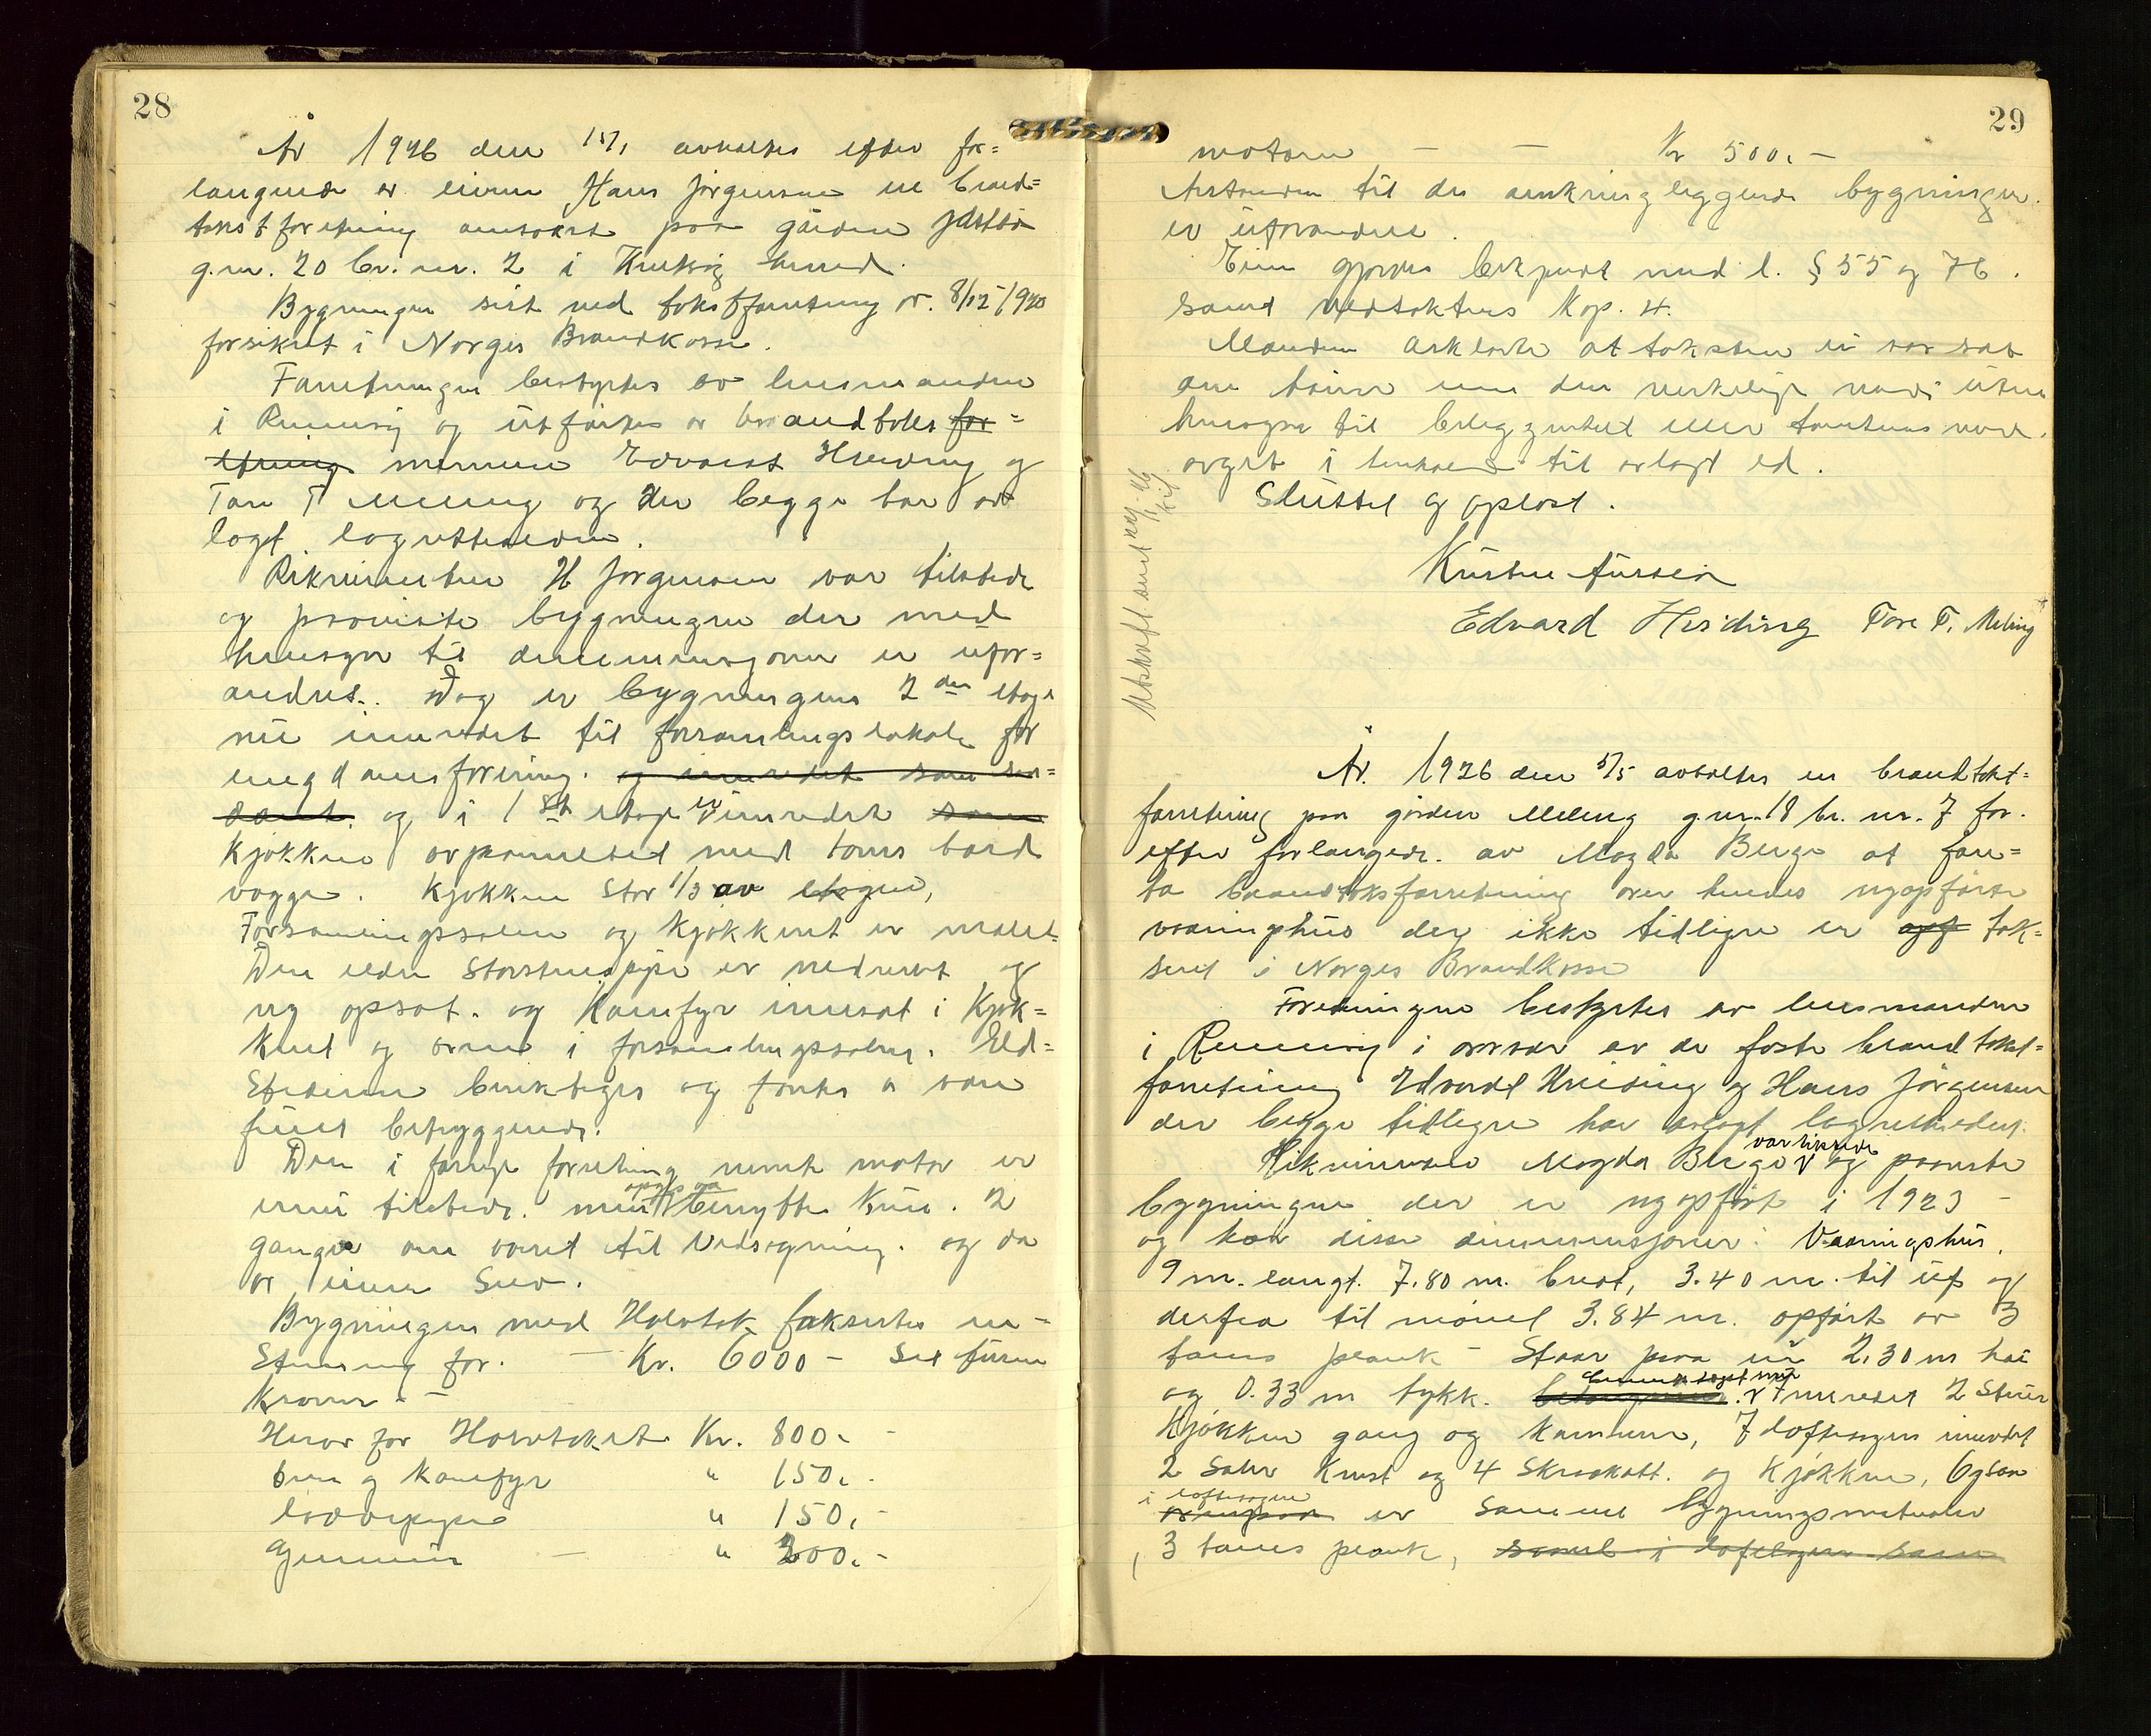 28
År 1926 den 15/1 avholtes efter for=
langende av eieren Hans Jørgensen en brand=
takstforretning paa gården
g.nr. 20 br. nr. 2 i herred.
Bygningen sist ved takstforretning av 8/12 1920
forsikret i Norges Brandkasse.
Forretningen bestyrtes av lensmanden
i Rennesøy og utførtes av brandtakst for=
retning mennene Edvard Hersdring og
Tore T Meling og der begge har av
lagt lagretteeden.
Rekvirenten H Jørgensen var tilstede
og paaviste bygningen der med
hensyn til dimmensjoner er ufor=
andret. Dog er bygningens 2 den etage
nu innredet til forsamlingslokale for
ungdomsforening. og innredet som
og i 1 ste etage er innredet som
Kjøkken avpannelet med toms bord
vegge. Kjøkken Stor 1/3 av etagen,
Forsamlingssalen og Kjøkkenet er malet.
Den eldre Storstenspipe er nedrevet og
ny opsat. og Komfyr innsat i Kjøk=
kenet og ovne i forsamlingssalen. Ild=
Stederne besiktiges og fantes a vere
fuldt betryggende.
Den i forrige forretning nevnte motor er
ennu tilstede. men opgis aa benyttes Kun. 2
ganger om aaret til Vedsagning. og da
av eieren Selv.
Bygningen med Halvtak taksertes un=
Stenmur for. — Kr. 6000 – Seks tusen
Kroner –
Herav for Halvtaket Kr. 800. –
ovn og Komfyr " 150. –
" 150. –
Grunmur — " 300. –
29
motoren — — Kr 500. –
Avstanden til de omkringliggende bygninger
er uforandret.
Eieren gjordes bekjendt med l. § 55 og 76.
samt vedtekters Kap. 4.
Manden erklærte at taksten ei var sat
om høiere enn den verkelige verdi uten
hensyn til beliggenhet eller tomtens verd.
avgit i henhold til avlagt ed.
Sluttet og oplæst.
Edvard Hersdring Tore T. Meling
Utskrift sendt
År. 1926 den 5/5 avholtes en brandtakst=
forretning paa gården Meling g.nr. 18 br. nr. 7 for.
efter forlangede. av Magda Berge at fore=
ta brandtaksforretning over hendes nyopførte
vaaninghus der ikke tidligere er opf tak=
seret i Norges Brandkasse
Forretningen bestyrtes av lensmanden
i Rennesøy i nærvær av de faste brandtakst=
forretning Edvardt Hersdring og Hans Jørgensen
der begge tidligere har avlagt lagretteeden.
Rekvirenten Magda Berge var tilstede og paaviste
bygningen der er nyopført i 1923 –
og har disse dimmensjoner: Vaaningshus.
9 m. langt. 7.80 m. bredt, 3.40 m. til uf og
derfra til mønet 3.84 m. opført av 3
toms plank – Staar paa mur 2.30 m høi
og 0.33 m tykk. Innredet 2 Stuer
Kjøkken gang og Kammer, I loftetagen innredet
2 Saler Kvist og 4 Skraakott. og Kjøkken,
i loftetagen er Samme bygningsmateriale
3 toms plank, samt i loftetagen som